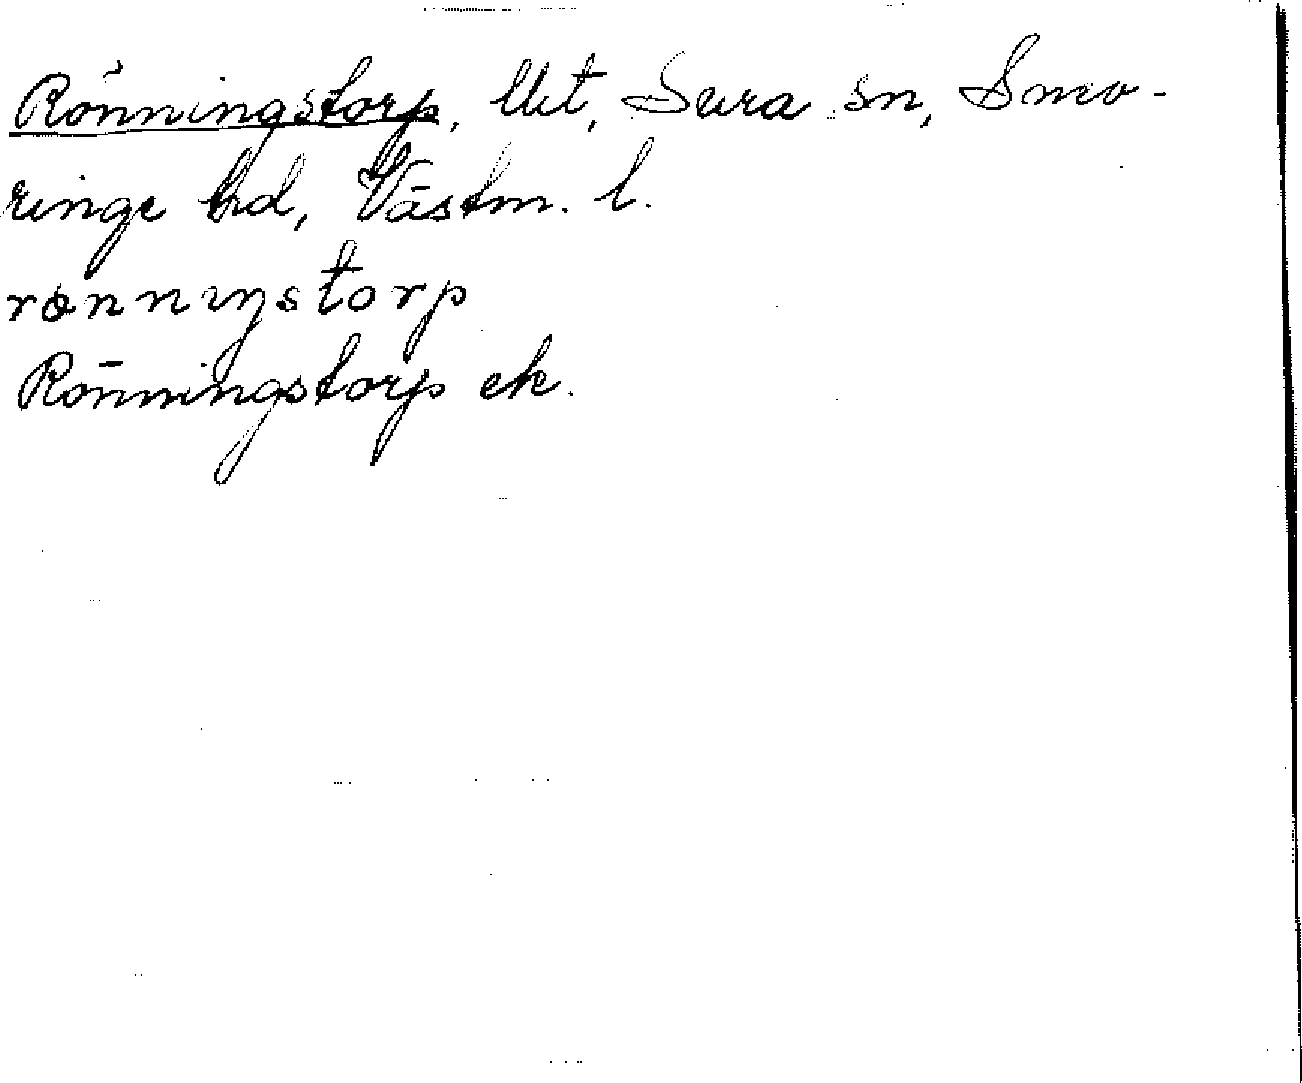 Rönningstorp, lht, Sura sn, Snev-
ringe hd, Västm. l.
rönniŋstorp
Rönningstorp ek.